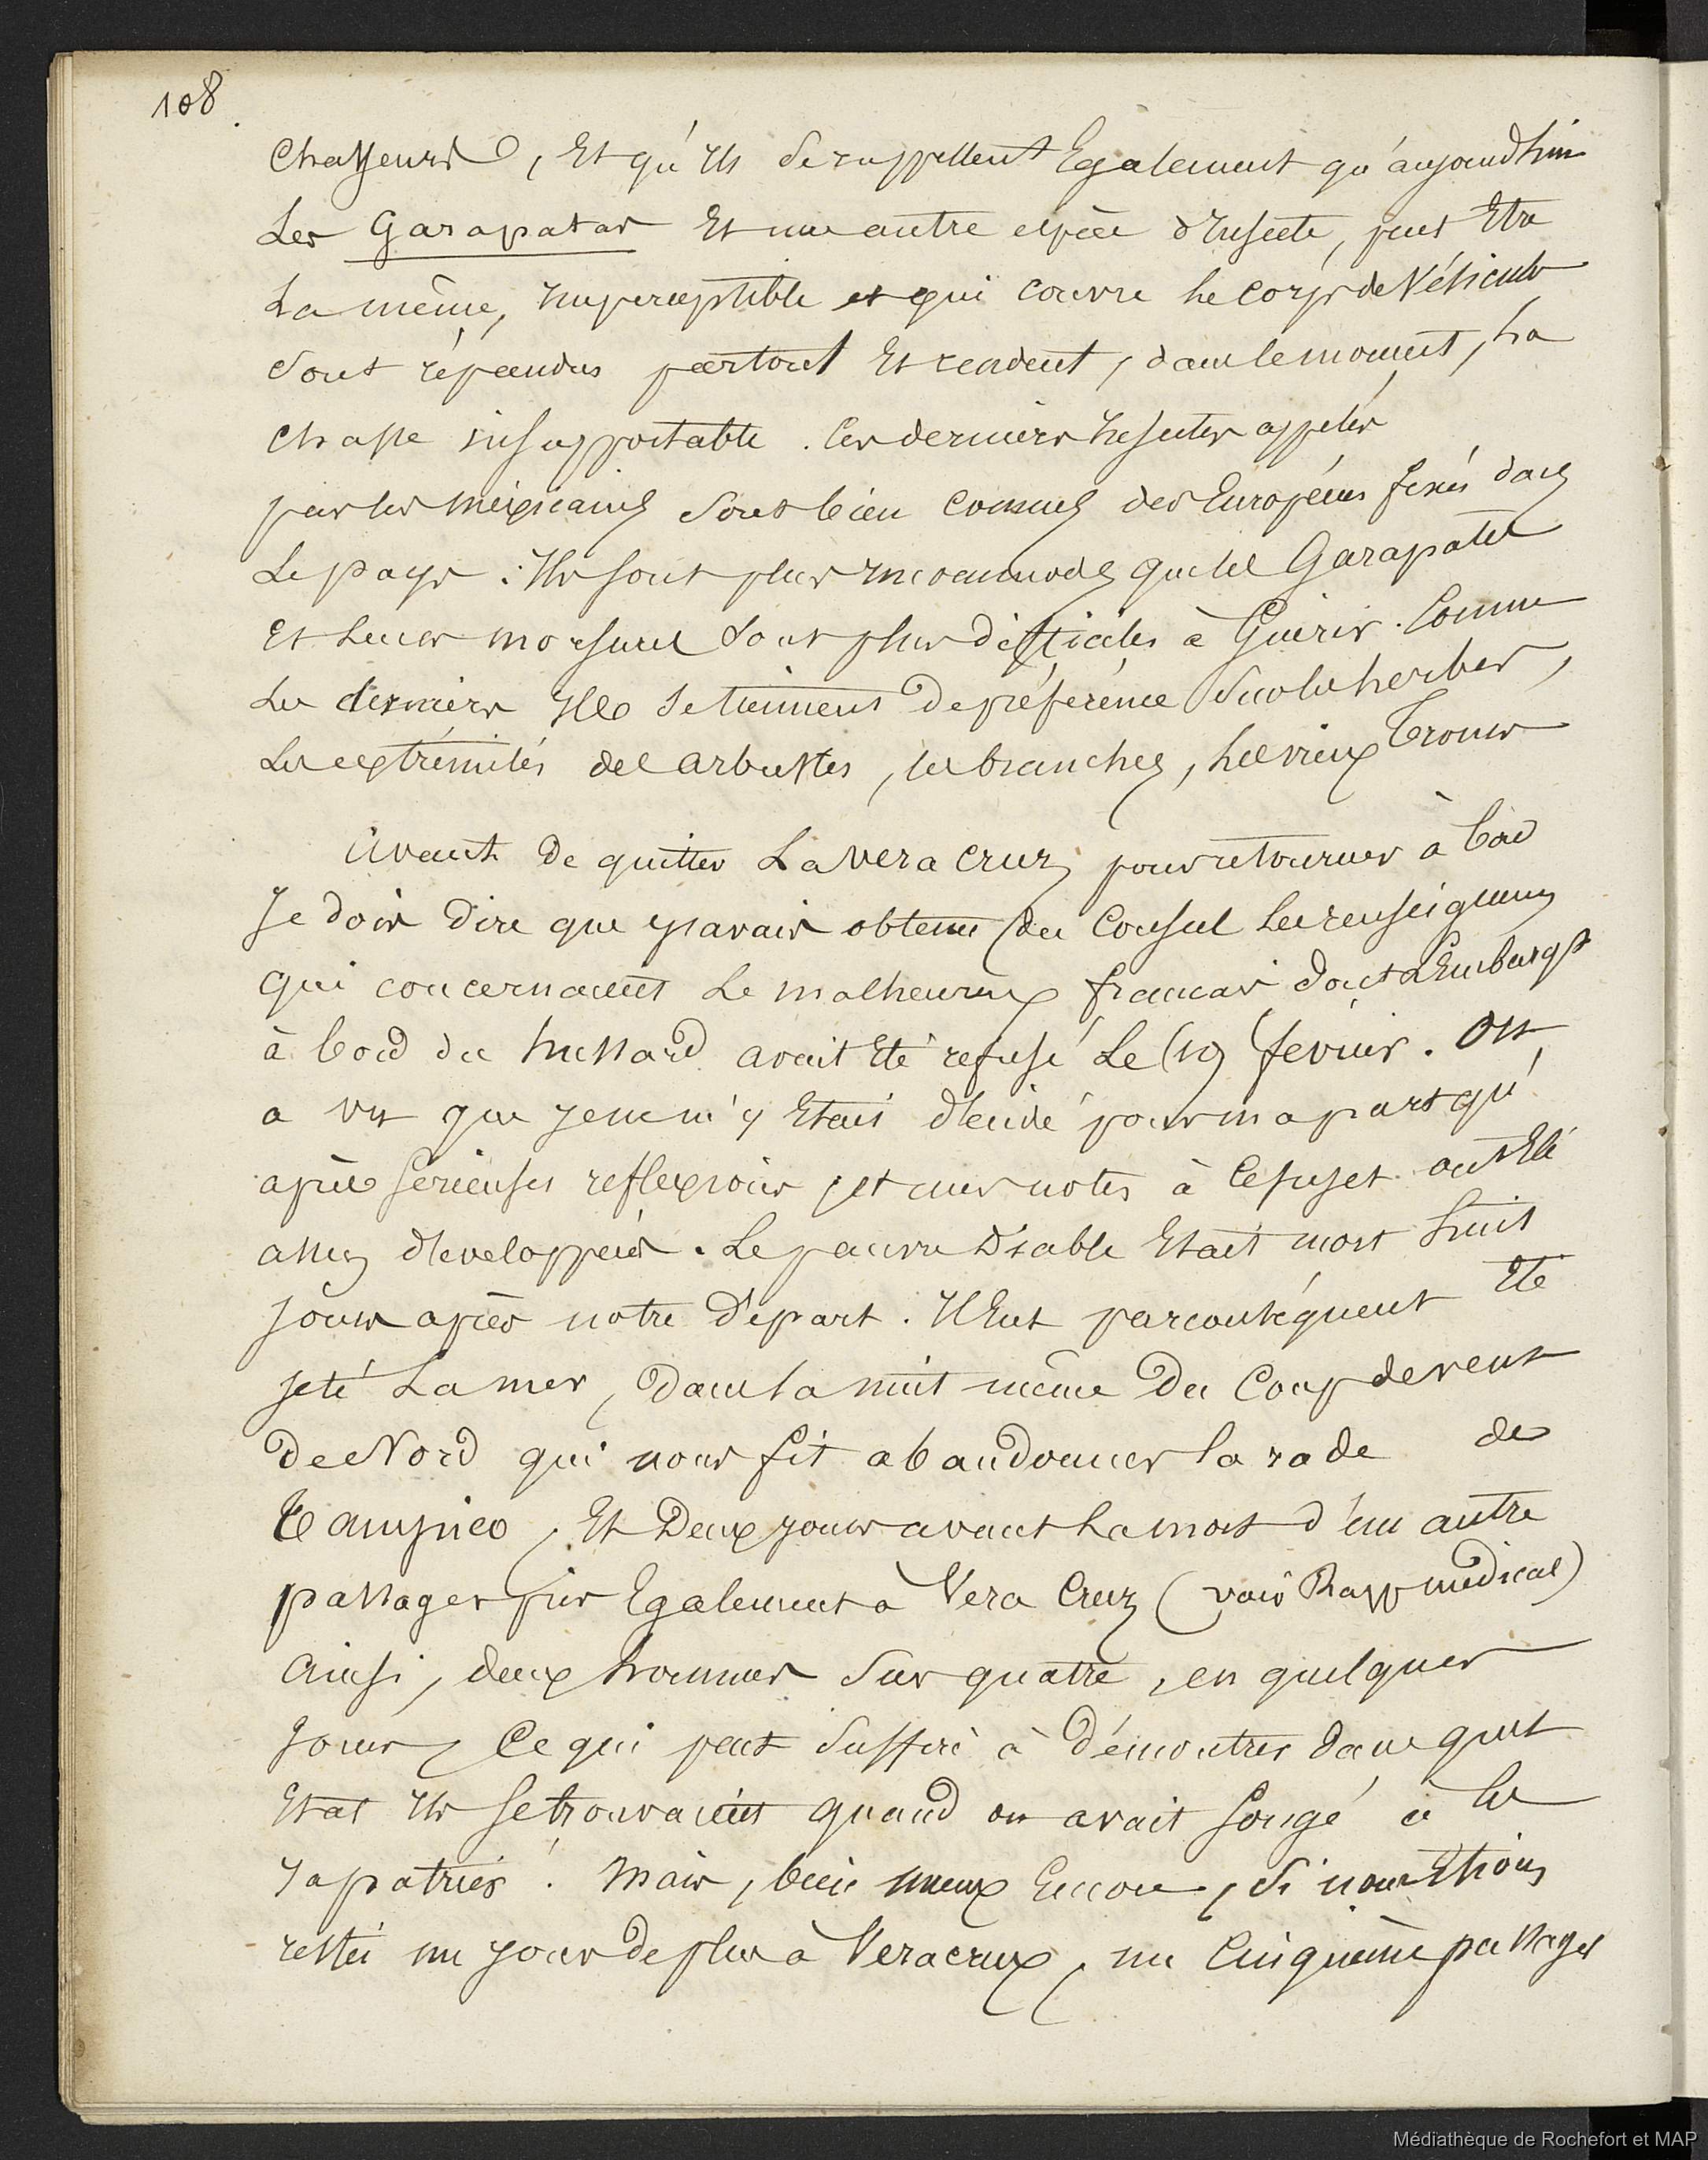 108
Chasseurs, Et qu'ils se rappellent Egalement qu'aujourd'hui
Les Garapatas Et une autre espèce d'Insecte, peut Etre
La même, Imperceptible et qui couvre le corps de Vésicules
Sont répandus partout Et rendent, dans le moment, La
Chasse insupportable. Ces derniers Insectes appelés
par les Mexicains sont bien connus des Européens fixés dans
Le pays : Ils sont plus Incommodes que les Garapates
Et Leurs morsures sont plus difficiles à Guérir. Comme
Les derniers Ils se tiennent De préférence sur les herbes,
Les extrémités des arbustes, les branches, les vieux Troncs
Avant De quitter La Vera Cruz, pour retourner à bord
Je dois Dire que j'avais obtenu du Consul Les renseignemens
qui concernaient Le malheureux francais dont L'Embarqt
à bord du hussard avait Eté refusé Le 19 fevrier. On
a vu que je ne m'y Etais décidé pour ma part qu'
après serieuses reflexions, et mes notes à ce sujet ont Eté
assez développées. Le pauvre Diable Etait mort huit
jours après notre Départ. Il Eut par conséquent Eté
jeté La mer, Dans la nuit même Du Coup de vent
De Nord qui nous fit abandonner la rade de
Tampico, Et Deux jours avant La mort d'un autre
passager pris Egalement à Vera Cruz (voir Rapp medical)
Ainsi, deux hommes sur quatre, en quelques
Jours, Ce qui peut suffire à Démontrer dans quel
Etat Ils se trouvaient quand on avait songé à les
rapatrier ! Mais, bien mieux Encore, si nous Etions
restés un jour de plus à Veracrux, un Cinquième passager
Médiathèque de Rochefort et MAP